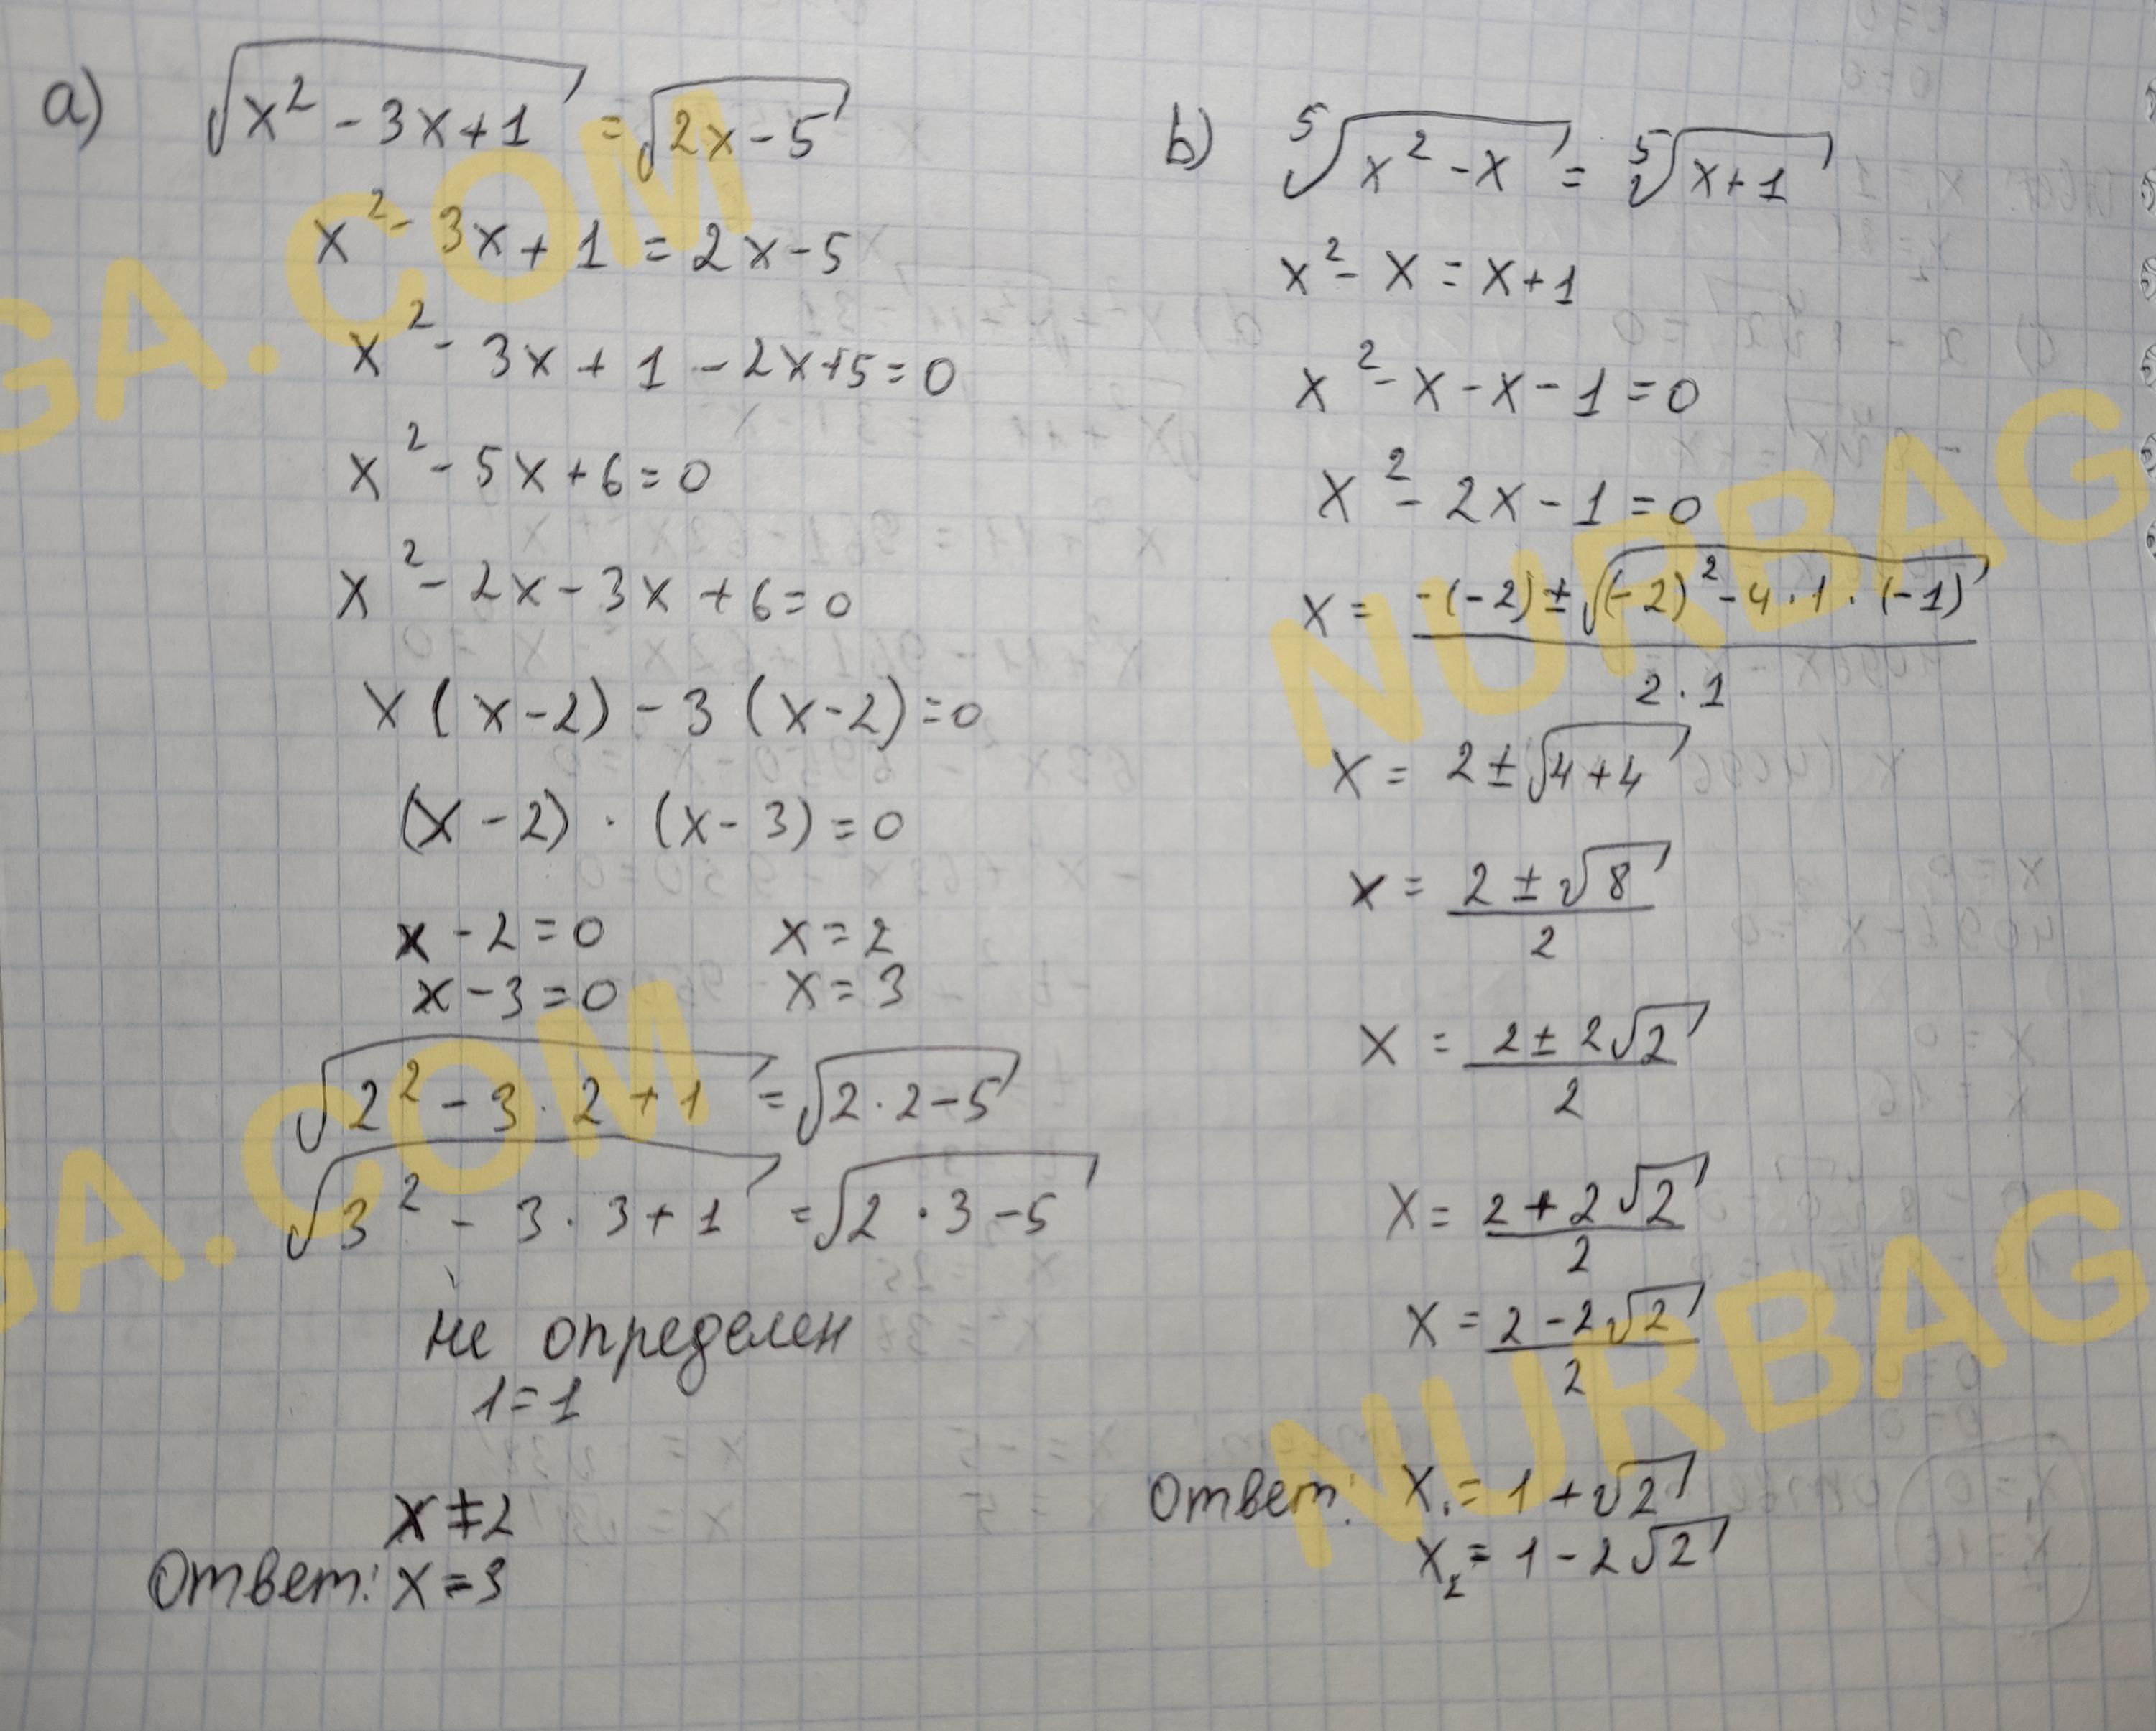 a) √(x² - 3x + 1) = √(2x - 5)
x² - 3x + 1 = 2x - 5
x² - 3x + 1 - 2x + 5 = 0
x² - 5x + 6 = 0
x² - 2x - 3x + 6 = 0
x(x - 2) - 3(x - 2) = 0
(x - 2) · (x - 3) = 0
x - 2 = 0 x = 2
x - 3 = 0 x = 3
√(2² - 3 · 2 + 1) = √(2 · 2 - 5)
√(3² - 3 · 3 + 1) = √(2 · 3 - 5)
не определен
1 = 1
x ≠ 2
Ответ: x = 3
b) ⁵√(x² - x) = ⁵√(x + 1)
x² - x = x + 1
x² - x - x - 1 = 0
x² - 2x - 1 = 0
x = (-(-2) ± √((-2)² - 4 · 1 · (-1))) / (2 · 1)
x = 2 ± √(4 + 4)
x = (2 ± √8) / 2
x = (2 ± 2√2) / 2
x = (2 + 2√2) / 2
x = (2 - 2√2) / 2
Ответ: x₁ = 1 + √2
x₂ = 1 - 2√2
GA.COM
NURBAG
GA.COM
NURBAG